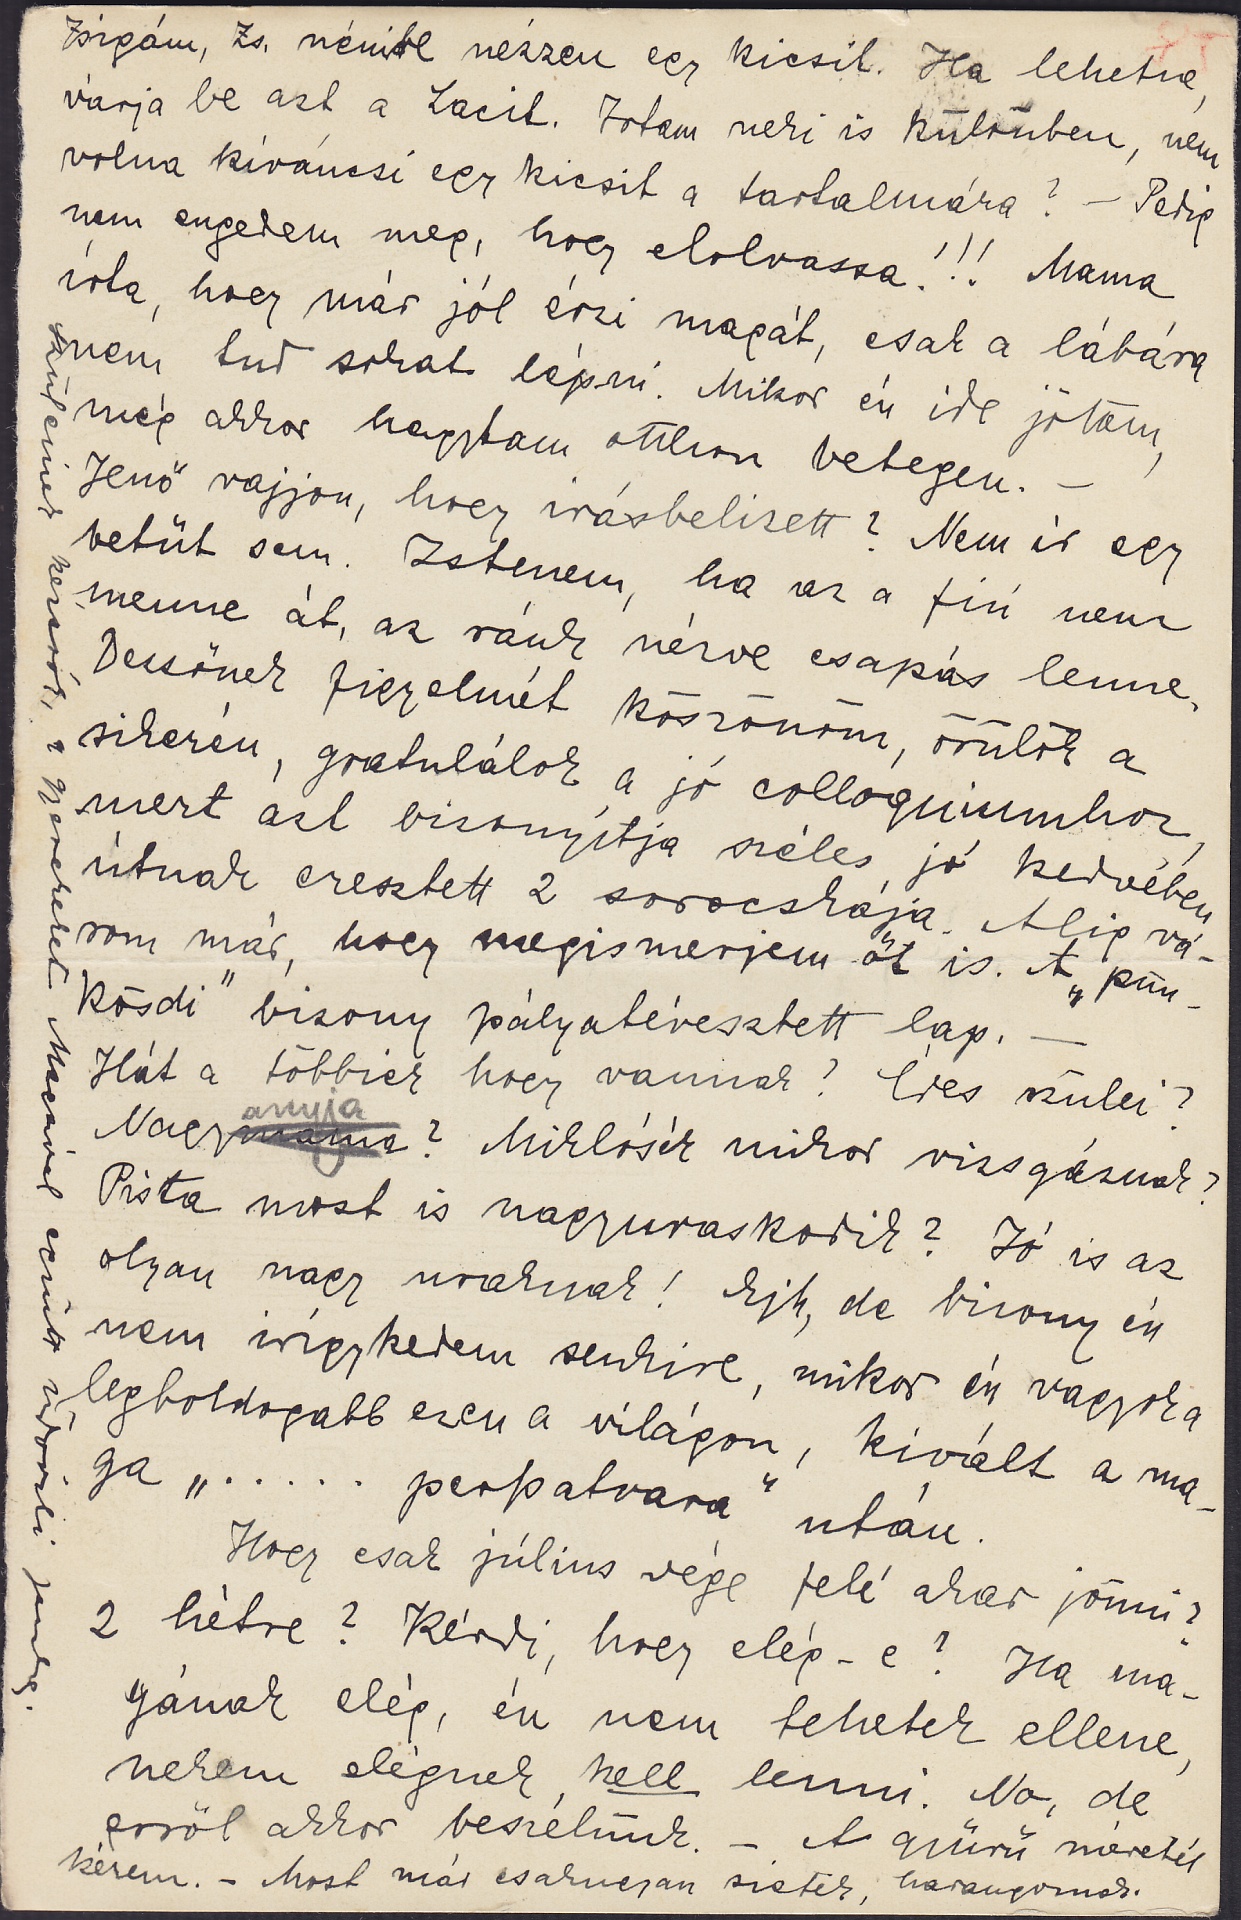 Zsigám, Zs. nénite nézzen egy kicsit. Ha lehetne,
várja be azt a Lacit. Irtam neki is különben, nem
volna kiváncsi egy kicsit a tartalmára? – Pedig
nem engedem meg, hogy elolvassa!!! Mama
írta, hogy már jól érzi magát, csak a lábára
nem tud sokat lépni. Mikor én ide jötem,
még akkor hagytam otthon betegen. –
Jenő vajjon, hogy irásbelizett? Nem ir egy
betüt sem. Istenem, ha az a fiú nem
menne át, az ránk nézve csapás lenne.
Dezsőnek figyelmét köszönöm, örülök a
sikerén, gratulálok a jó colloquiumhoz,
mert azt bizonyítja széles jó kedvében
útnak eresztett 2 sorocskája. Alig vá-
rom már, hogy megismerjem őt is. A „pün-
kösdi" bizony pályatévesztett lap. –
Hát a többiek hogy vannak? Édes szülei?
Nagyanyja? Miklósék mikor vizsgáznak?
Pista most is nagyuraskodik? Jó is az
olyan nagy uraknak! Ejh, de bizony én
nem irígykedem senkire, mikor én vagyok a
legboldogabb ezen a világon, kivált a ma-
ga „..... perpatvara" után.
Hogy csak július vége felé akar jönni?
2 hétre? Kérdi, hogy elég-e? Ha ma-
gának elég, én nem tehetek ellene,
nekem elégnek kell lenni. No, de
erről akkor beszélünk. – A gyűrű méretét
kérem. – Most már csakugyan sietek, harangoznak.
szüleinek kezeit, a gyerekeket Macával együtt üdvözli